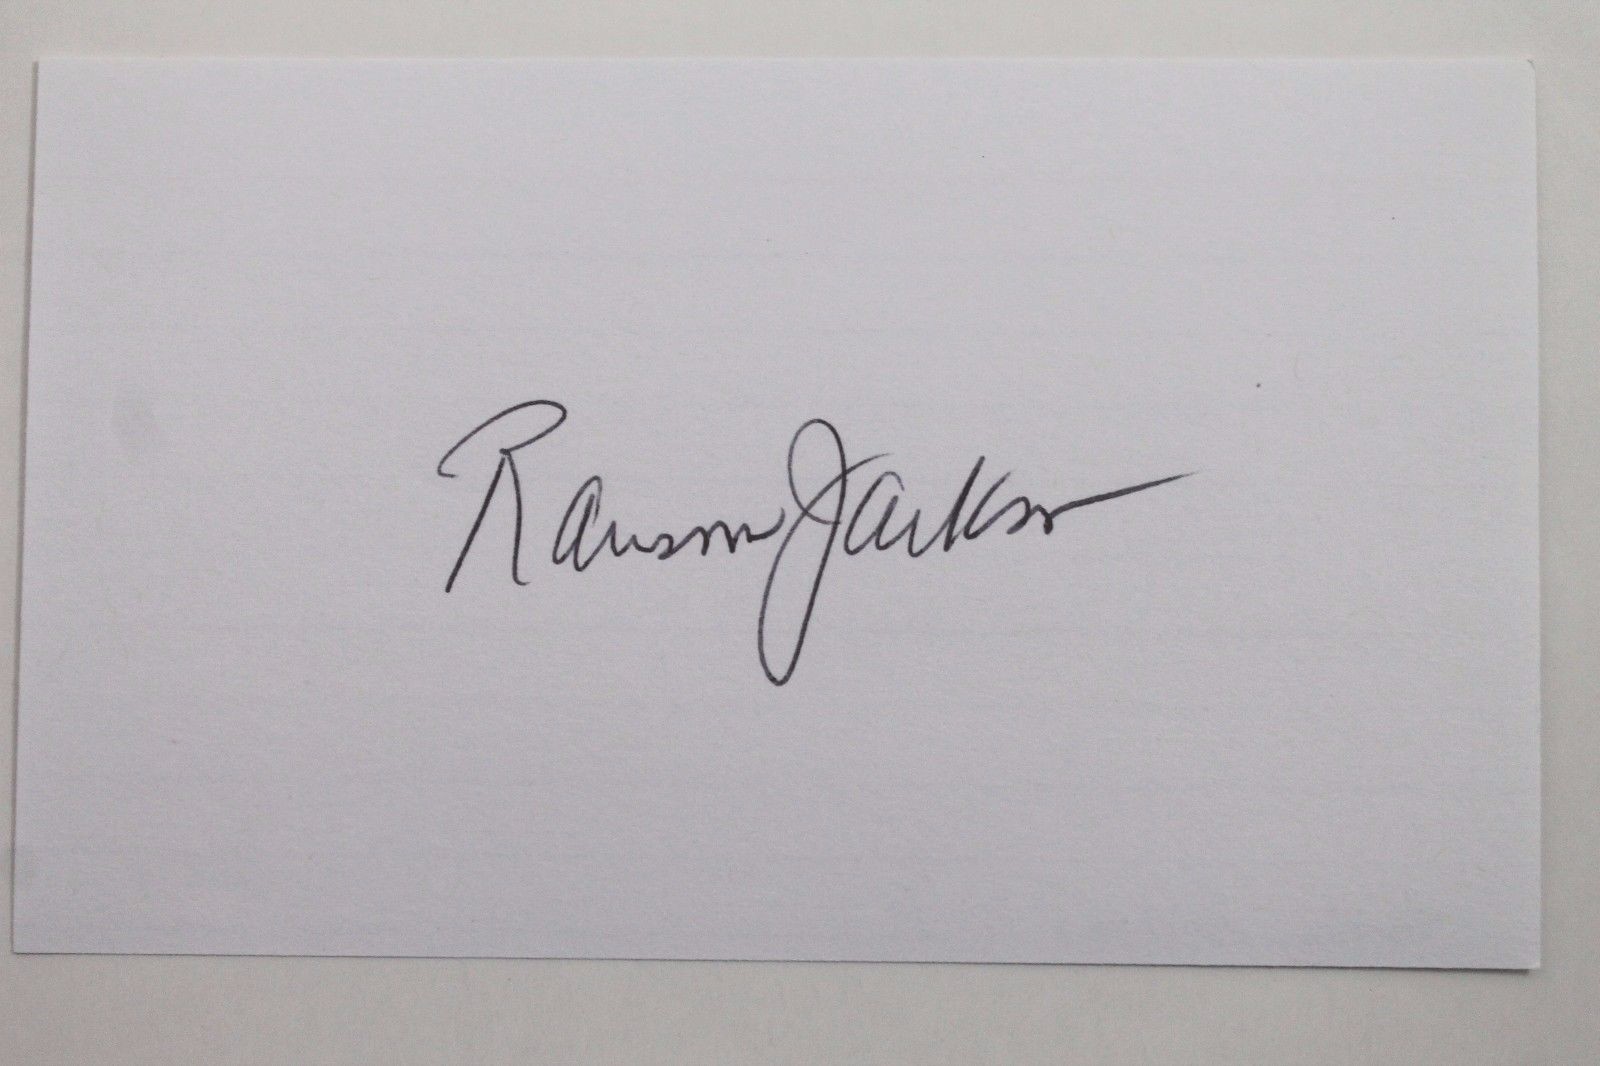 Ransom Jackson